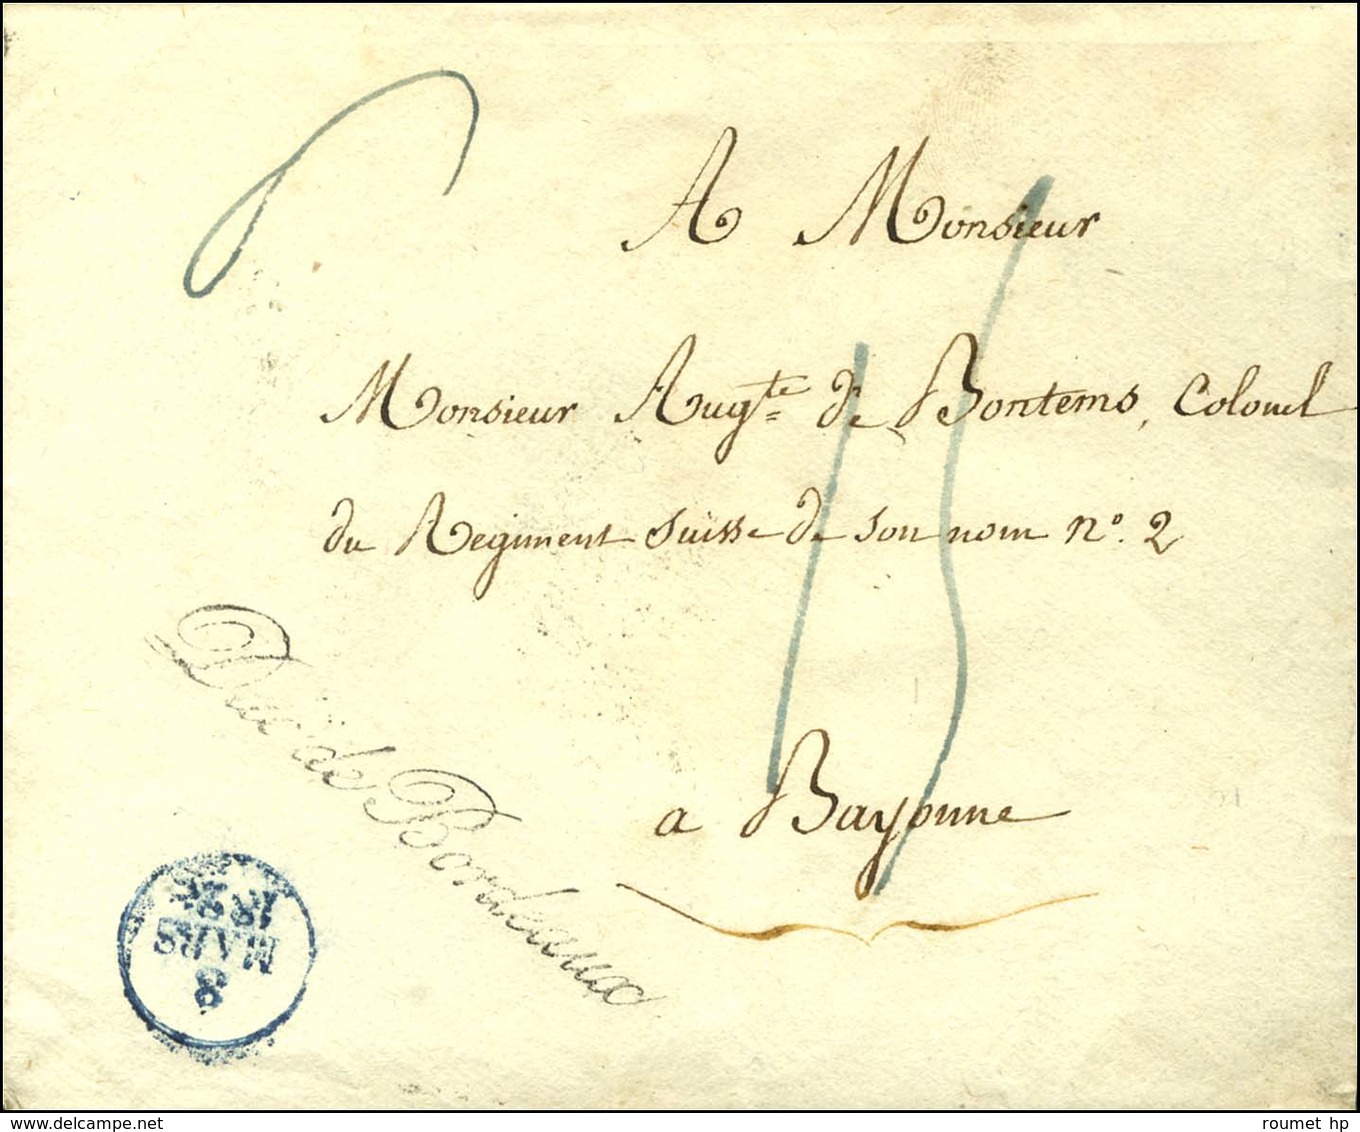 A Monsieur
Monsieur Augte de Bontems, Colonel
du Regiment Suisse de son nom no. 2
a Bayonne
15
Duc de Bordeaux
8
MARS
1828
www.delcampe.net
roumet hp